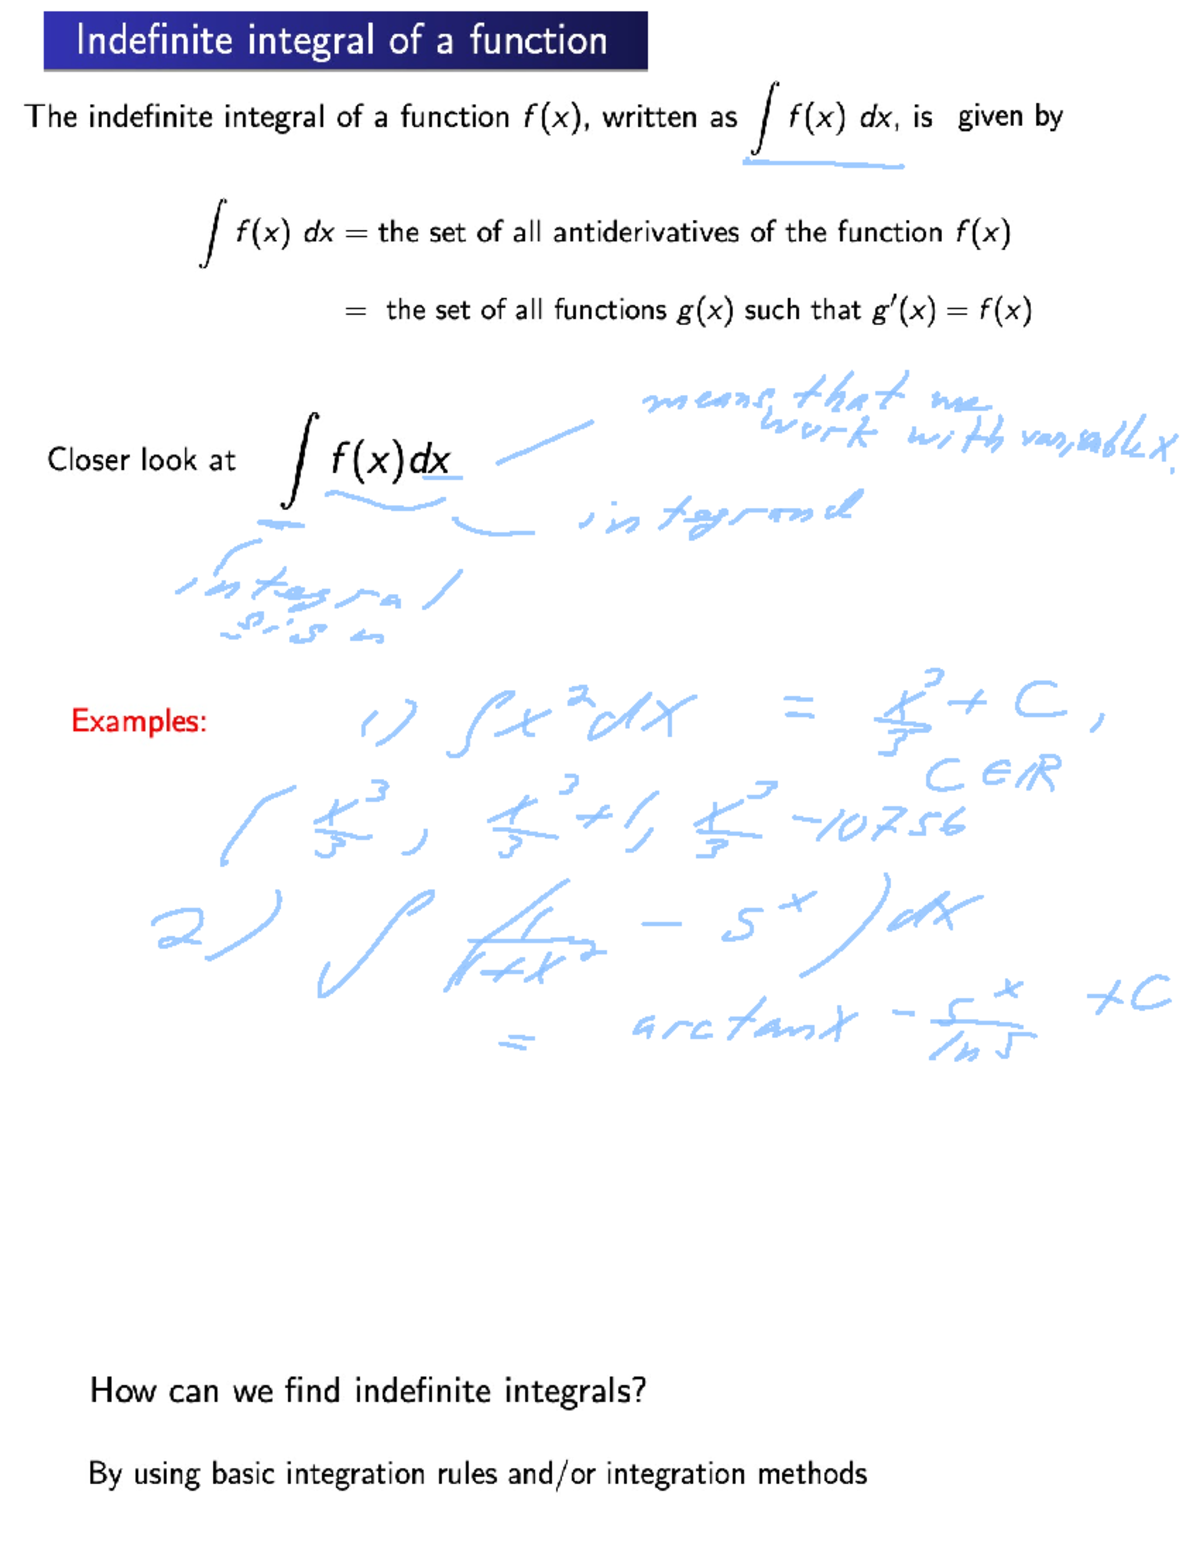 Indefinite integral of a function
The indefinite integral of a function f(x), written as ∫ f(x) dx, is given by
∫ f(x) dx = the set of all antiderivatives of the function f(x)
= the set of all functions g(x) such that g′(x) = f(x)
means that we
work with variable x.
Closer look at ∫ f(x)dx
integrand
integral
sign
Examples: 1) ∫x²dx = x³/3 + C,
C ∈ ℝ
x³/3, x³/3 + 1, x³/3 - 10756
2) ∫ (1/(1+x²) - 5ˣ)dx
= arctanx - 5ˣ/ln5 + C
How can we find indefinite integrals?
By using basic integration rules and/or integration methods